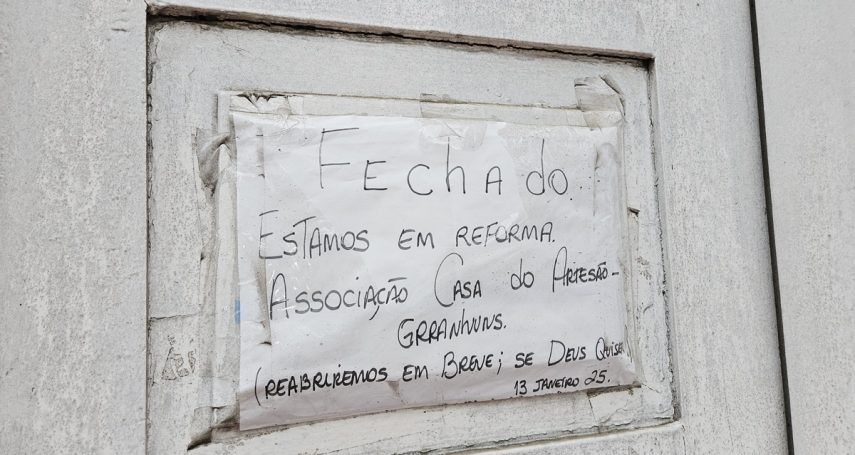 Fechado
ESTAMOS EM REFORMA.
ASSOCIAÇÃO CASA do ARTESÃO-
GRRANHUNS.
(REABRIREMOS EM BREVE; SE DEUS QUISER
13 JANEIRO 25.